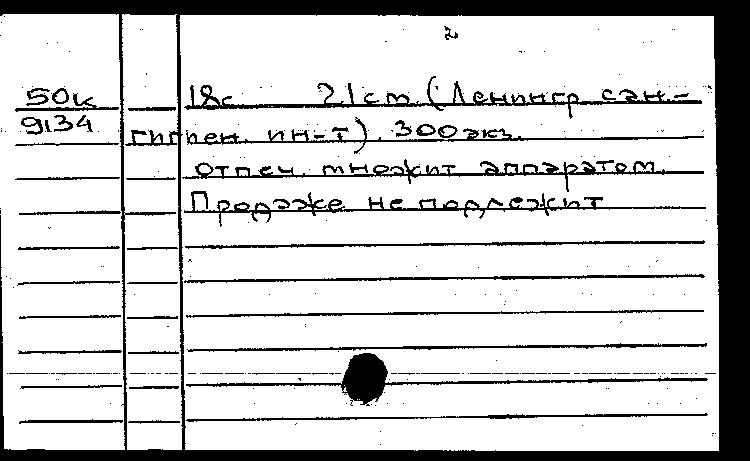 2
50к 18с 21 cm. (Ленингр. сан.-
9134 гигиен. ин-т). 300 экз.
отпеч. множит. аппаратом.
Продаже не подлежит